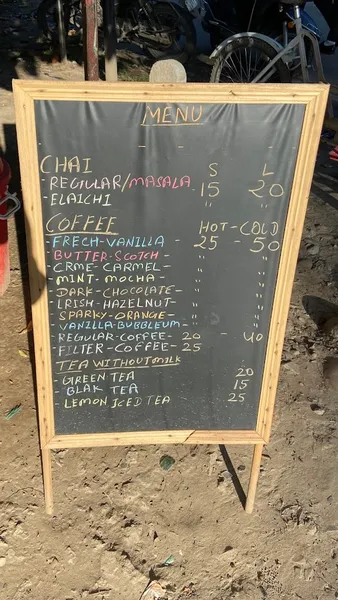 MENU
CHAI S L
- REGULAR/MASALA 15 20
- ELAICHI " "
COFFEE HOT - COLD
- FRECH-VANILLA - 25 - 50
- BUTTER-SCOTCH - " "
- CRME-CARMEL - " "
- MINT-MOCHA - " "
- DARK-CHOCOLATE - " "
- IRISH-HAZELNUT - " "
- SPARKY-ORANGE - " "
- VANILLA-BUBBLEUM - " "
- REGULAR-COFFEE - 20 - 40
- FILTER-COFFEE - 25
TEA WITHOUT MILK
- GREEN TEA 20
- BLAK TEA 15
- LEMON ICED TEA 25